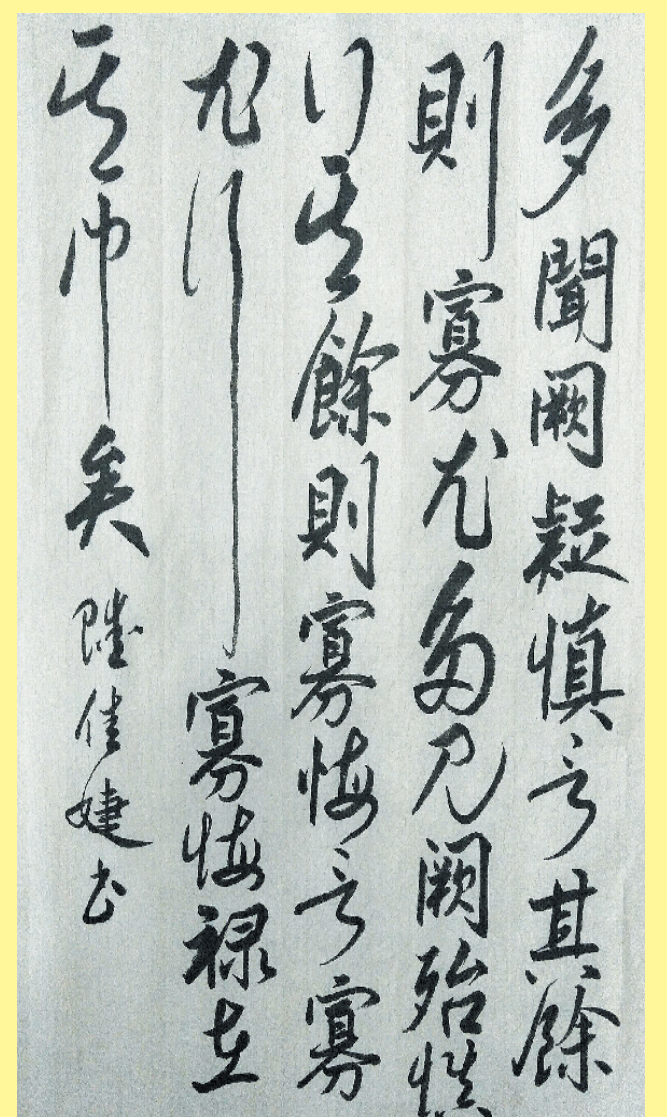 多聞闕疑慎言其餘
則寡尤多見闕殆慎
行其餘則寡悔言寡
尤行寡悔祿在
其中矣 陸佳婕书